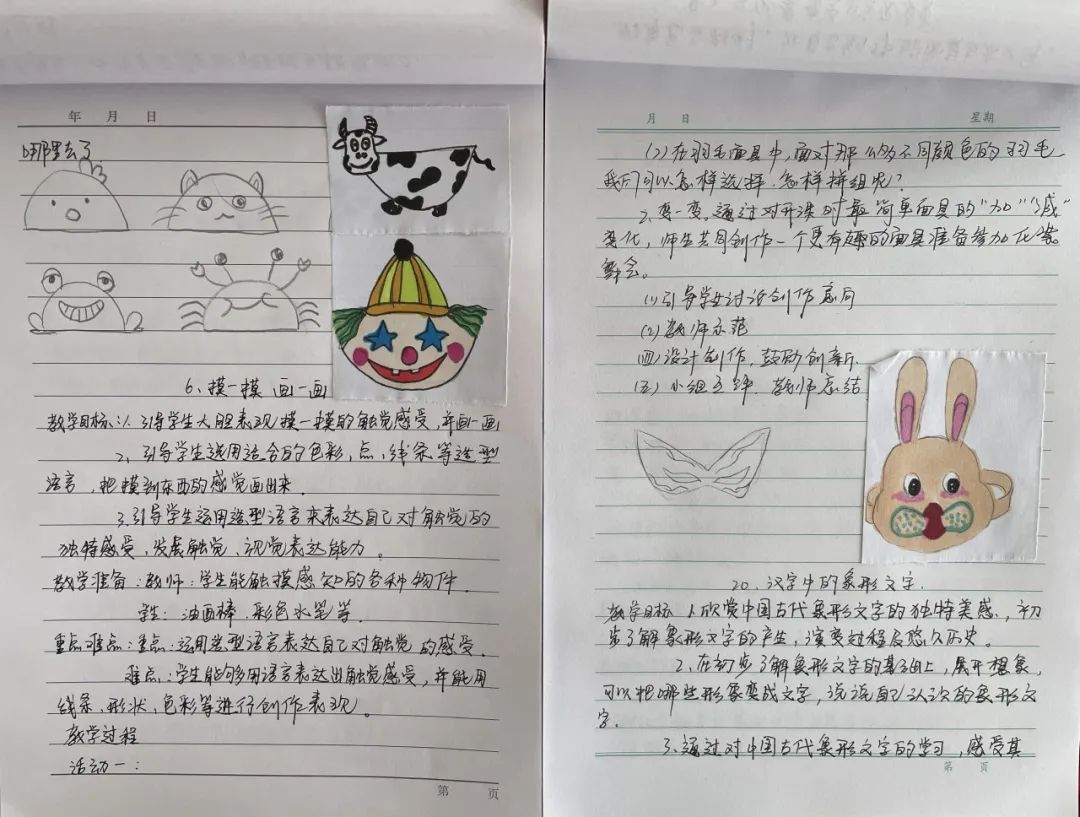 年 月 日
哪里去了
6、摸一摸 画一画
教学目标：1、引导学生大胆表现摸一摸的触觉感受，并画一画
2、引导学生选用适合的色彩，点，线条等造型
语言，把摸到东西的感觉画出来。
3、引导学生运用造型语言来表达自己对触觉的
独特感受，发展触觉、视觉表达能力。
教学准备：教师：学生能触摸感知的各种物件.
学生：油画棒.彩色水笔等.
重点难点：重点：运用造型语言表达自己对触觉的感受.
难点：学生能够用语言表达出触觉感受，并能用
线条、形状、色彩等进行创作表现。
教学过程
活动一：
第 页
月 日 星期
(2)在羽毛面具中，面对那么多不同颜色的羽毛
我们可以怎样选择.怎样拼组呢？
2.变一变，通过对开课时最简单面具的“加”“减”
变化，师生共同创作一个更有趣的面具准备参加化装
舞会。
(1)引导学生讨论创作意向
(2)教师示范
(四)设计创作.鼓励创新.
(五)小组互评.教师总结
20.汉字中的象形文字.
教学目标 1.欣赏中国古代象形文字的独特美感，初
步了解象形文字的产生，演变过程及悠久历史。
2.在初步了解象形文字的基础上，展开想象，
可以把哪些形象变成文字，说说自己认识的象形文
字.
3.通过对中国古代象形文字的学习，感受其
第 页